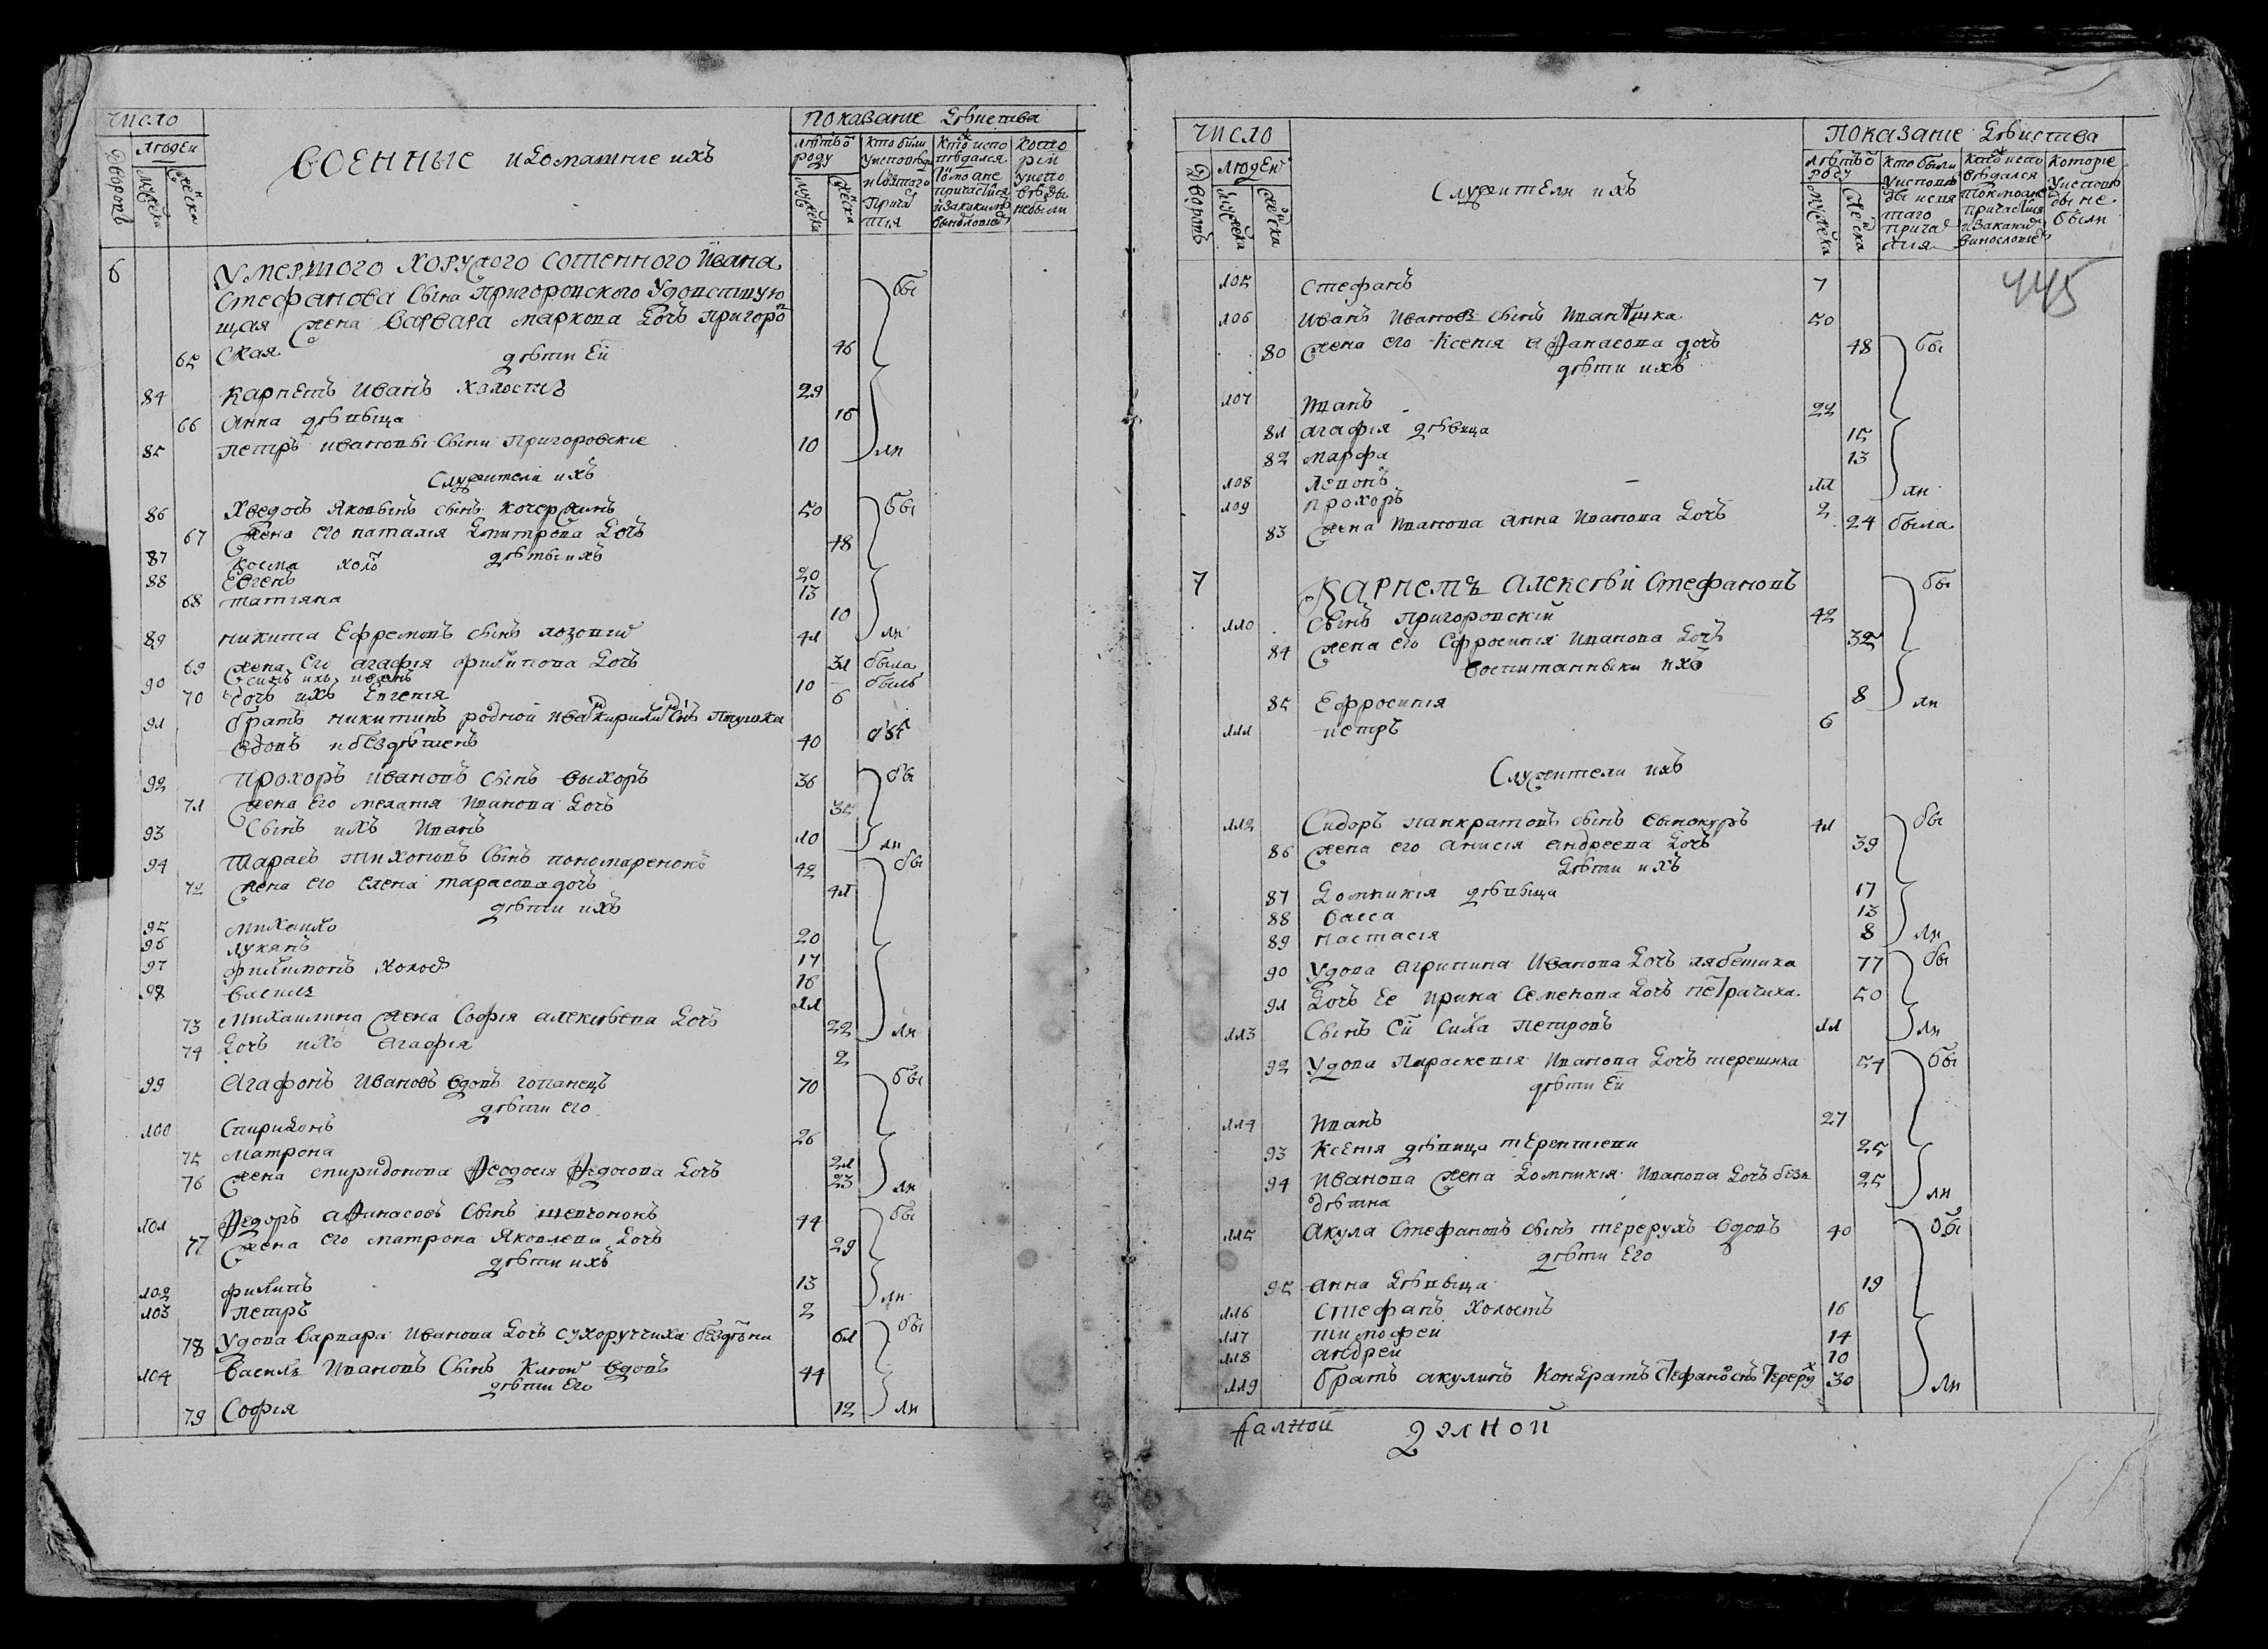 число
людей
дворовъ
мужеска
женска
военные идомашние ихъ
показание действа
летъ от роду
мужеска
женска
кто были
уисповеди
исвятаго
прича
стия
кто испо
ведался
токмо не
причастился
иза каким
винословиемъ
кото
рии
уиспо
веды
небыли
6
Умершого хоружого сотенного ивана
Стефанова сына Пригоровского Удовствую
щая жена варвара маркова дочъ пригоров
65 Ская 46 бы
дети Ей
84 карнетъ иванъ холостиъ 29
66 Анна девыца 16
85 петръ ивановы сыни Пригоровские 10 ли
Служители ихъ
86 Хведосъ Яковынъ сынъ кочержинъ 50 бы
67 жена его наталия дмитрова дочъ 48
детьи ихъ
87 косма холо 20
88 Евгенъ 13
68 татияна 10 ли
89 никита Ефремовъ сынъ лозовий 41
69 жена его агафия филипова дочъ 31 была
90 синъ ихъ иванъ 10 быль
70 дочъ ихъ Евгения 6
91 братъ никитинъ родной ива кирилов снъ птушка
вдовъ и бездетенъ 40 бы
92 Прохоръ ивановъ сынъ выхоръ 36 бы
71 жена его мелания Иванова дочъ 35
93 Сынъ ихъ Иванъ 10 ли
94 Тарасъ тихоновъ сынъ пономаренокъ 42 бы
72 жена его елена тарасова дочъ 41
дети ихъ
95 михаило 20
96 лукянъ 17
97 филимонъ холос 16
98 василь 11
73 михаилина жена София алексеева дочъ 22 ли
74 дочъ ихъ агафия 2
99 Агафонъ Ивановъ вдовъ гопанецъ 70 бы
дети его
100 Спиридонъ 26
75 Матрона 21
76 жена спиридонова Феодосия Федосова дочъ 23 ли
101 Федоръ афинасовъ сынъ шевчонокъ 44 бы
77 жена его матрона Яковлева дочъ 29
дети ихъ
102 филипъ 13 ли
103 петръ 2
78 Удова варвара Иванова дочъ сухоручиха бездетна 61 бы
104 Василъ Ивановъ сынъ вдовъ 44
дети Его
79 София 12 ли
число
людей
дворовъ
мужеска
женска
Служители ихъ
показание действа
летъ от роду
мужеска
женска
кто были
уиспове
ды исвя
таго
прича
стия
кто испо
ведался
токмо не
причастился
иза каким
винословиемъ
которие
уиспове
ды не
были
445
105 Стефанъ 7
106 Иванъ Ивановъ сынъ Иваныка 50
80 жена его Ксения Афанасова дочъ 48 бы
дети ихъ
107 Иванъ 22
81 агафия девица 15
82 марфа 13
108 Левонъ 11 ли
109 прохоръ 2
83 жена Иванова Анна Иванова дочъ 24 была
7 Карнетъ Алексей Стефановъ бы
110 Сынъ пригоровский 42
84 жена его Ефросиния Иванова дочъ 32
воспитанныки ихъ
85 Ефросиния 8 ли
111 петръ 6
Служители ихъ
112 Сидоръ панкратовъ сынъ вынокуръ 41 бы
86 жена его анисия андреева дочъ 39
дети ихъ
87 домникия девыца 17
88 Васса 13
89 настасия 8 ли
90 Удова Агрипина Иванова дочъ лябетиха 77 бы
91 дочъ ее Ирина Семенова дочъ петрачиха 50
113 Сынъ Ей Сила Петровъ 11 ли
92 Удова Параскевия Иванова дочъ терешиха 54 бы
дети Ей
114 Иванъ 27
93 Ксения девица терентиеви 25
94 Иванова жена домникия Иванова дочъ безъ 25 ли
детна
115 Акула Стефановъ сынъ терерухъ вдовъ 40 бы
дети Его
95 Анна девыца 19
116 Стефанъ холостъ 16
117 тимофей 14
118 андрей 10
119 братъ акулинъ кондратъ стефановъ снъ Тереру 30 ли